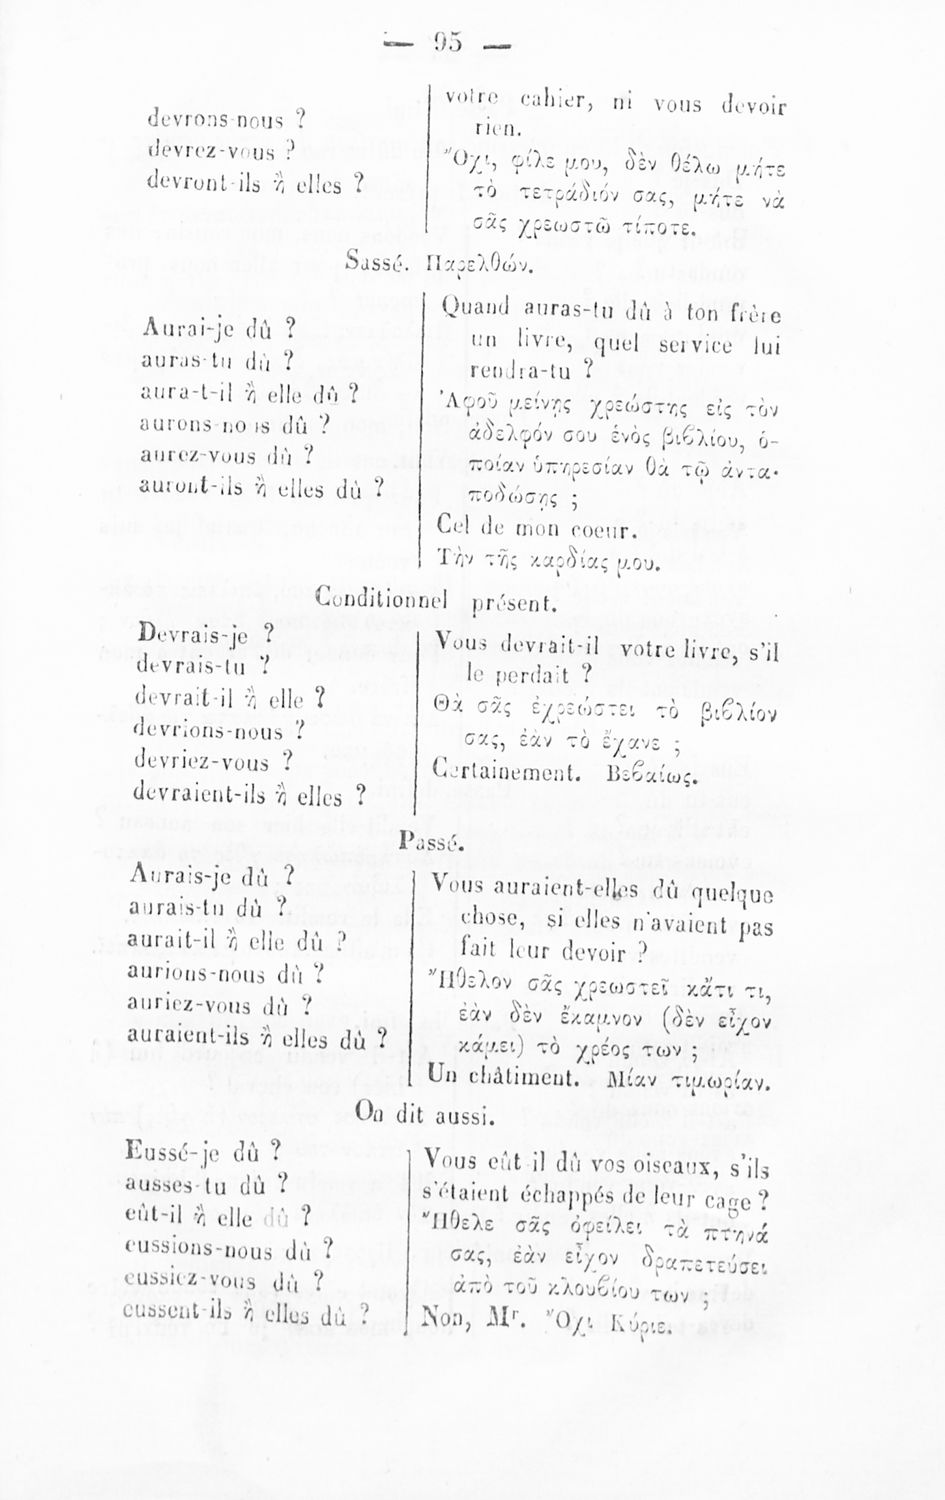 — 95 —
devrons-nous ?
devrez-vous ?
devront-ils ἢ elles ?
votre cahier, ni vous devoir
rien.
Ὄχι, φίλε μου, δὲν θέλω μήτε
τὸ τετράδιόν σας, μήτε νὰ
σᾶς χρεωστῶ τίποτε.
Sassé. Παρελθών.
Aurai-je dû ?
auras-tu dû ?
aura-t-il ἢ elle dû ?
aurons-nous dû ?
aurez-vous dû ?
auront-ils ἢ elles dû ?
Quand auras-tu dû à ton frère
un livre, quel service lui
rendra-tu ?
Ἀφοῦ μείνῃς χρεώστης εἰς τὸν
ἀδελφόν σου ἑνὸς βιβλίου, ὁ-
ποίαν ὑπηρεσίαν θὰ τῷ ἀντα-
ποδώσῃς ;
Cel de mon coeur.
Τὴν τῆς καρδίας μου.
Conditionnel présent.
Devrais-je ?
devrais-tu ?
devrait-il ἢ elle ?
devrions-nous ?
devriez-vous ?
devraient-ils ἢ elles ?
Vous devrait-il votre livre, s'il
le perdait ?
Θὰ σᾶς ἐχρεώστει τὸ βιβλίον
σας, ἐὰν τὸ ἔχανε ;
Certainement. Βεβαίως.
Passé.
Aurais-je dû ?
aurais-tu dû ?
aurait-il ἢ elle dû ?
aurions-nous dû ?
auriez-vous dû ?
auraient-ils ἢ elles dû ?
Vous auraient-elles dû quelque
chose, si elles n'avaient pas
fait leur devoir ?
Ἤθελον σᾶς χρεωστεῖ κᾄτι τι,
ἐὰν δὲν ἔκαμνον (δὲν εἶχον
κάμει) τὸ χρέος των ;
Un châtiment. Μίαν τιμωρίαν.
On dit aussi.
Eussé-je dû ?
ausses-tu dû ?
eût-il ἢ elle dû ?
eussions-nous dû ?
eussiez-vous dû ?
eussent-ils ἢ elles dû ?
Vous eût-il dû vos oiseaux, s'ils
s'étaient échappés de leur cage ?
Ἤθελε σᾶς ὀφείλει τὰ πτηνά
σας, ἐὰν εἶχον δραπετεύσει
ἀπὸ τοῦ κλουβίου των ;
Non, Mr. Ὄχι Κύριε.